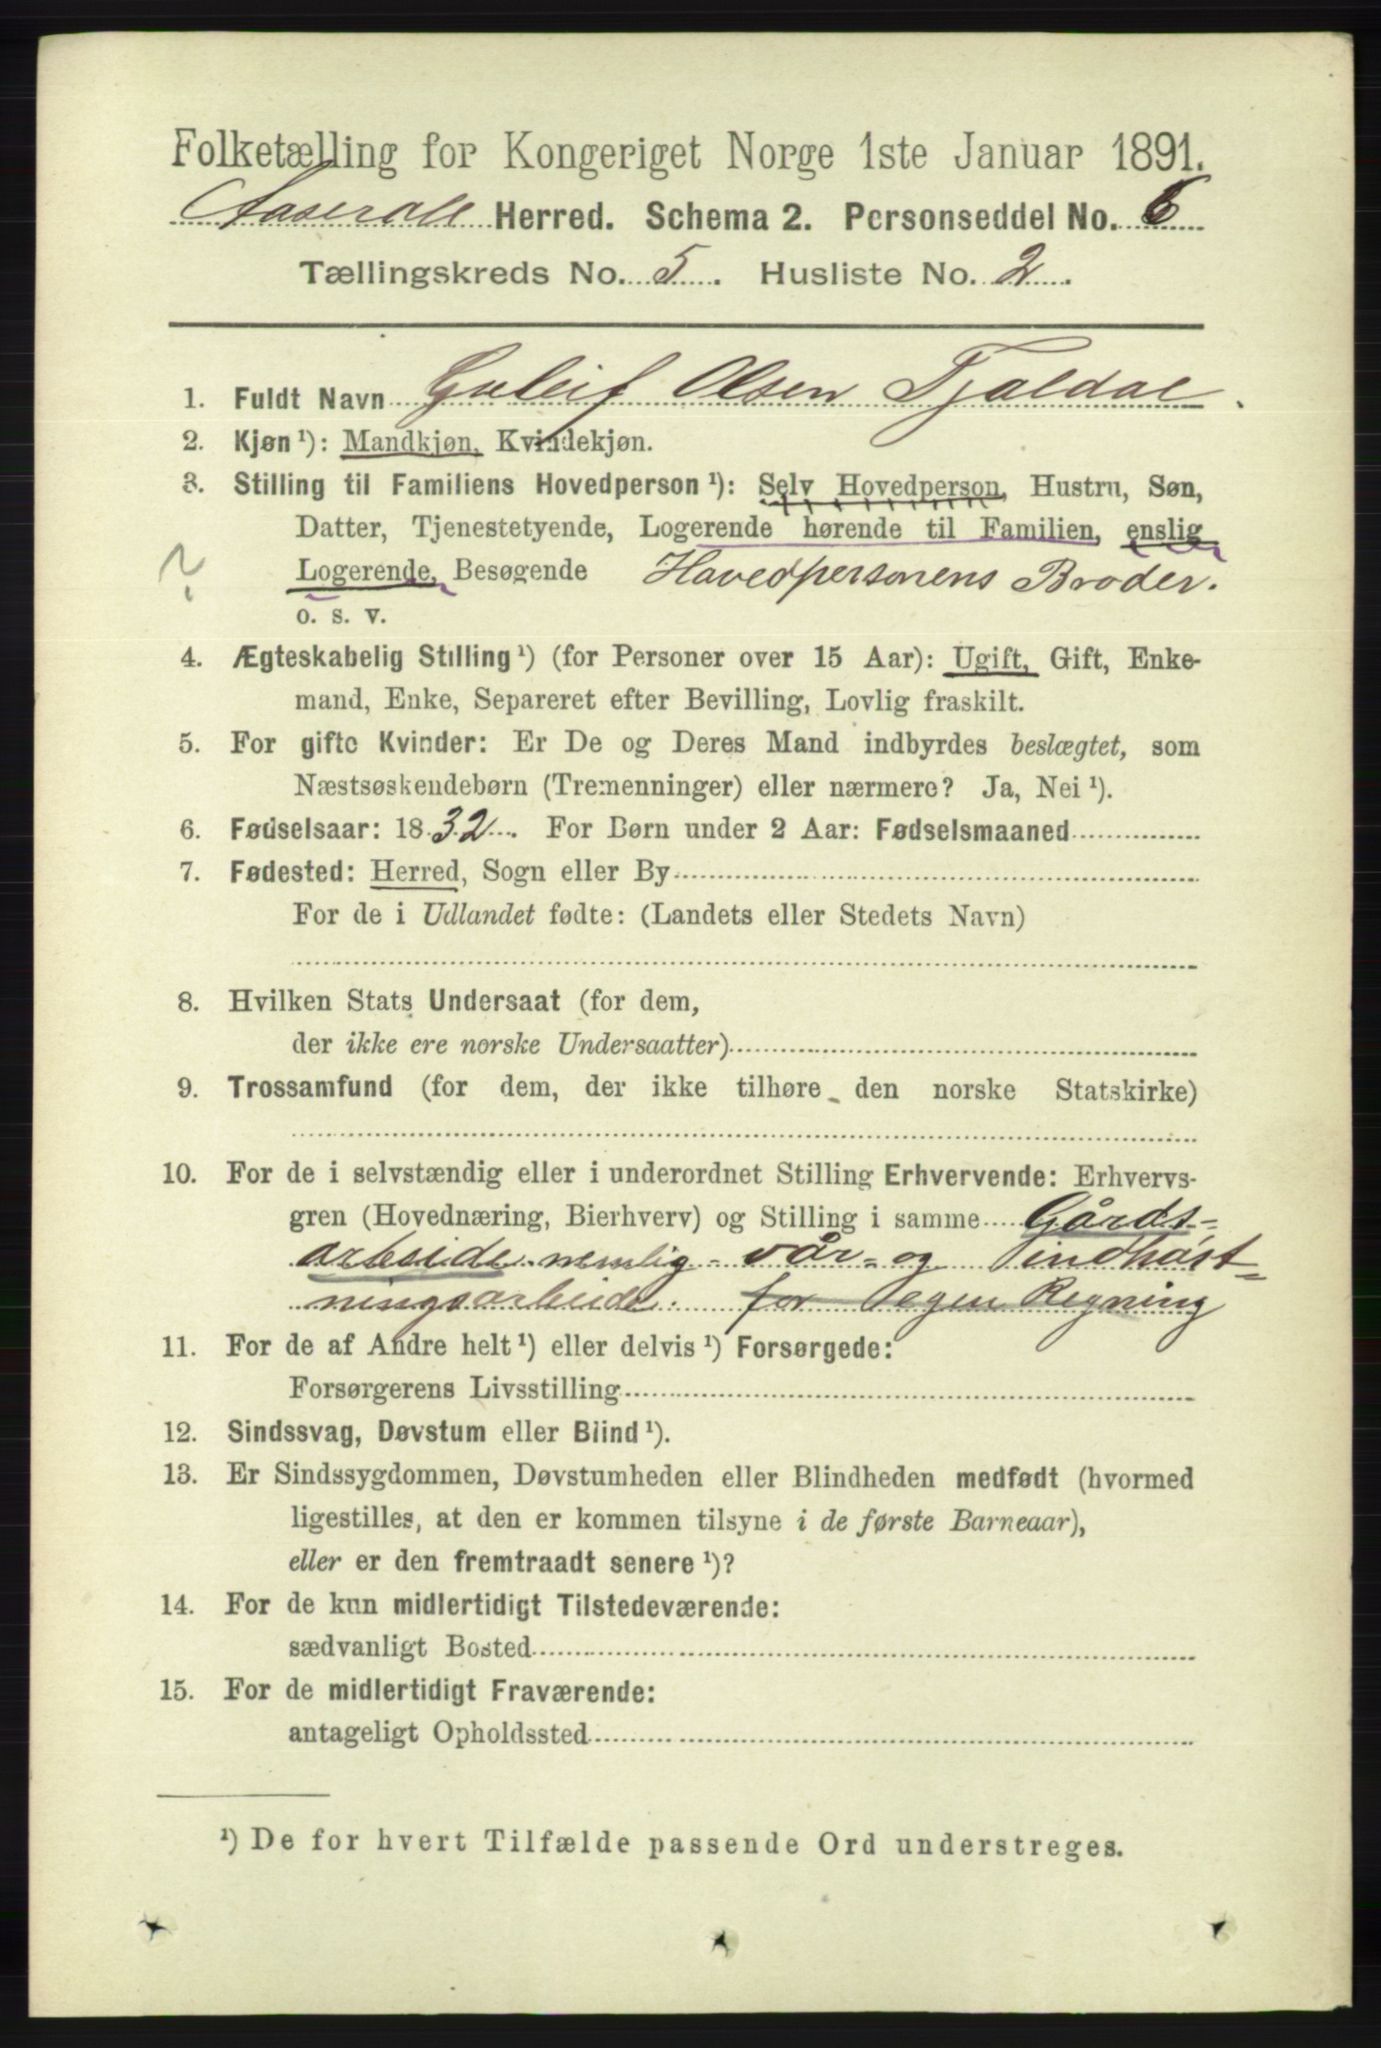 Folketælling for Kongeriget Norge 1ste Januar 1891.
Aaseral Herred. Schema 2. Personseddel No. 6
Tællingskreds No. 5. Husliste No. 2.
1. Fuldt Navn Guleif Olsen Tjaldal.
2. Kjøn ¹): Mandkjøn, Kvindekjøn.
3. Stilling til Familiens Hovedperson ¹): Selv Hovedperson, Hustru, Søn,
Datter, Tjenestetyende, Logerende hørende til Familien, enslig
? Logerende, Besøgende Hovedpersonens Broder.
o. s. v.
4. Ægteskabelig Stilling ¹) (for Personer over 15 Aar): Ugift, Gift, Enke-
mand, Enke, Separeret efter Bevilling, Lovlig fraskilt.
5. For gifte Kvinder: Er De og Deres Mand indbyrdes beslægtet, som
Næstsøskendebørn (Tremenninger) eller nærmere? Ja, Nei ¹).
6. Fødselsaar: 1832. For Børn under 2 Aar: Fødselsmaaned
7. Fødested: Herred, Sogn eller By
For de i Udlandet fødte: (Landets eller Stedets Navn)
8. Hvilken Stats Undersaat (for dem,
der ikke ere norske Undersaatter)
9. Trossamfund (for dem, der ikke tilhøre den norske Statskirke)
10. For de i selvstændig eller i underordnet Stilling Erhvervende: Erhvervs-
gren (Hovednæring, Bierhverv) og Stilling i samme Gårds-
arbeide nemlig vår- og indhøst-
ningsarbeide. for egen Regning
11. For de af Andre helt ¹) eller delvis ¹) Forsørgede:
Forsørgerens Livsstilling
12. Sindssvag, Døvstum eller Blind ¹).
13. Er Sindssygdommen, Døvstumheden eller Blindheden medfødt (hvormed
ligestilles, at den er kommen tilsyne i de første Barneaar),
eller er den fremtraadt senere ¹)?
14. For de kun midlertidigt Tilstedeværende:
sædvanligt Bosted
15. For de midlertidigt Fraværende:
antageligt Opholdssted
¹) De for hvert Tilfælde passende Ord understreges.